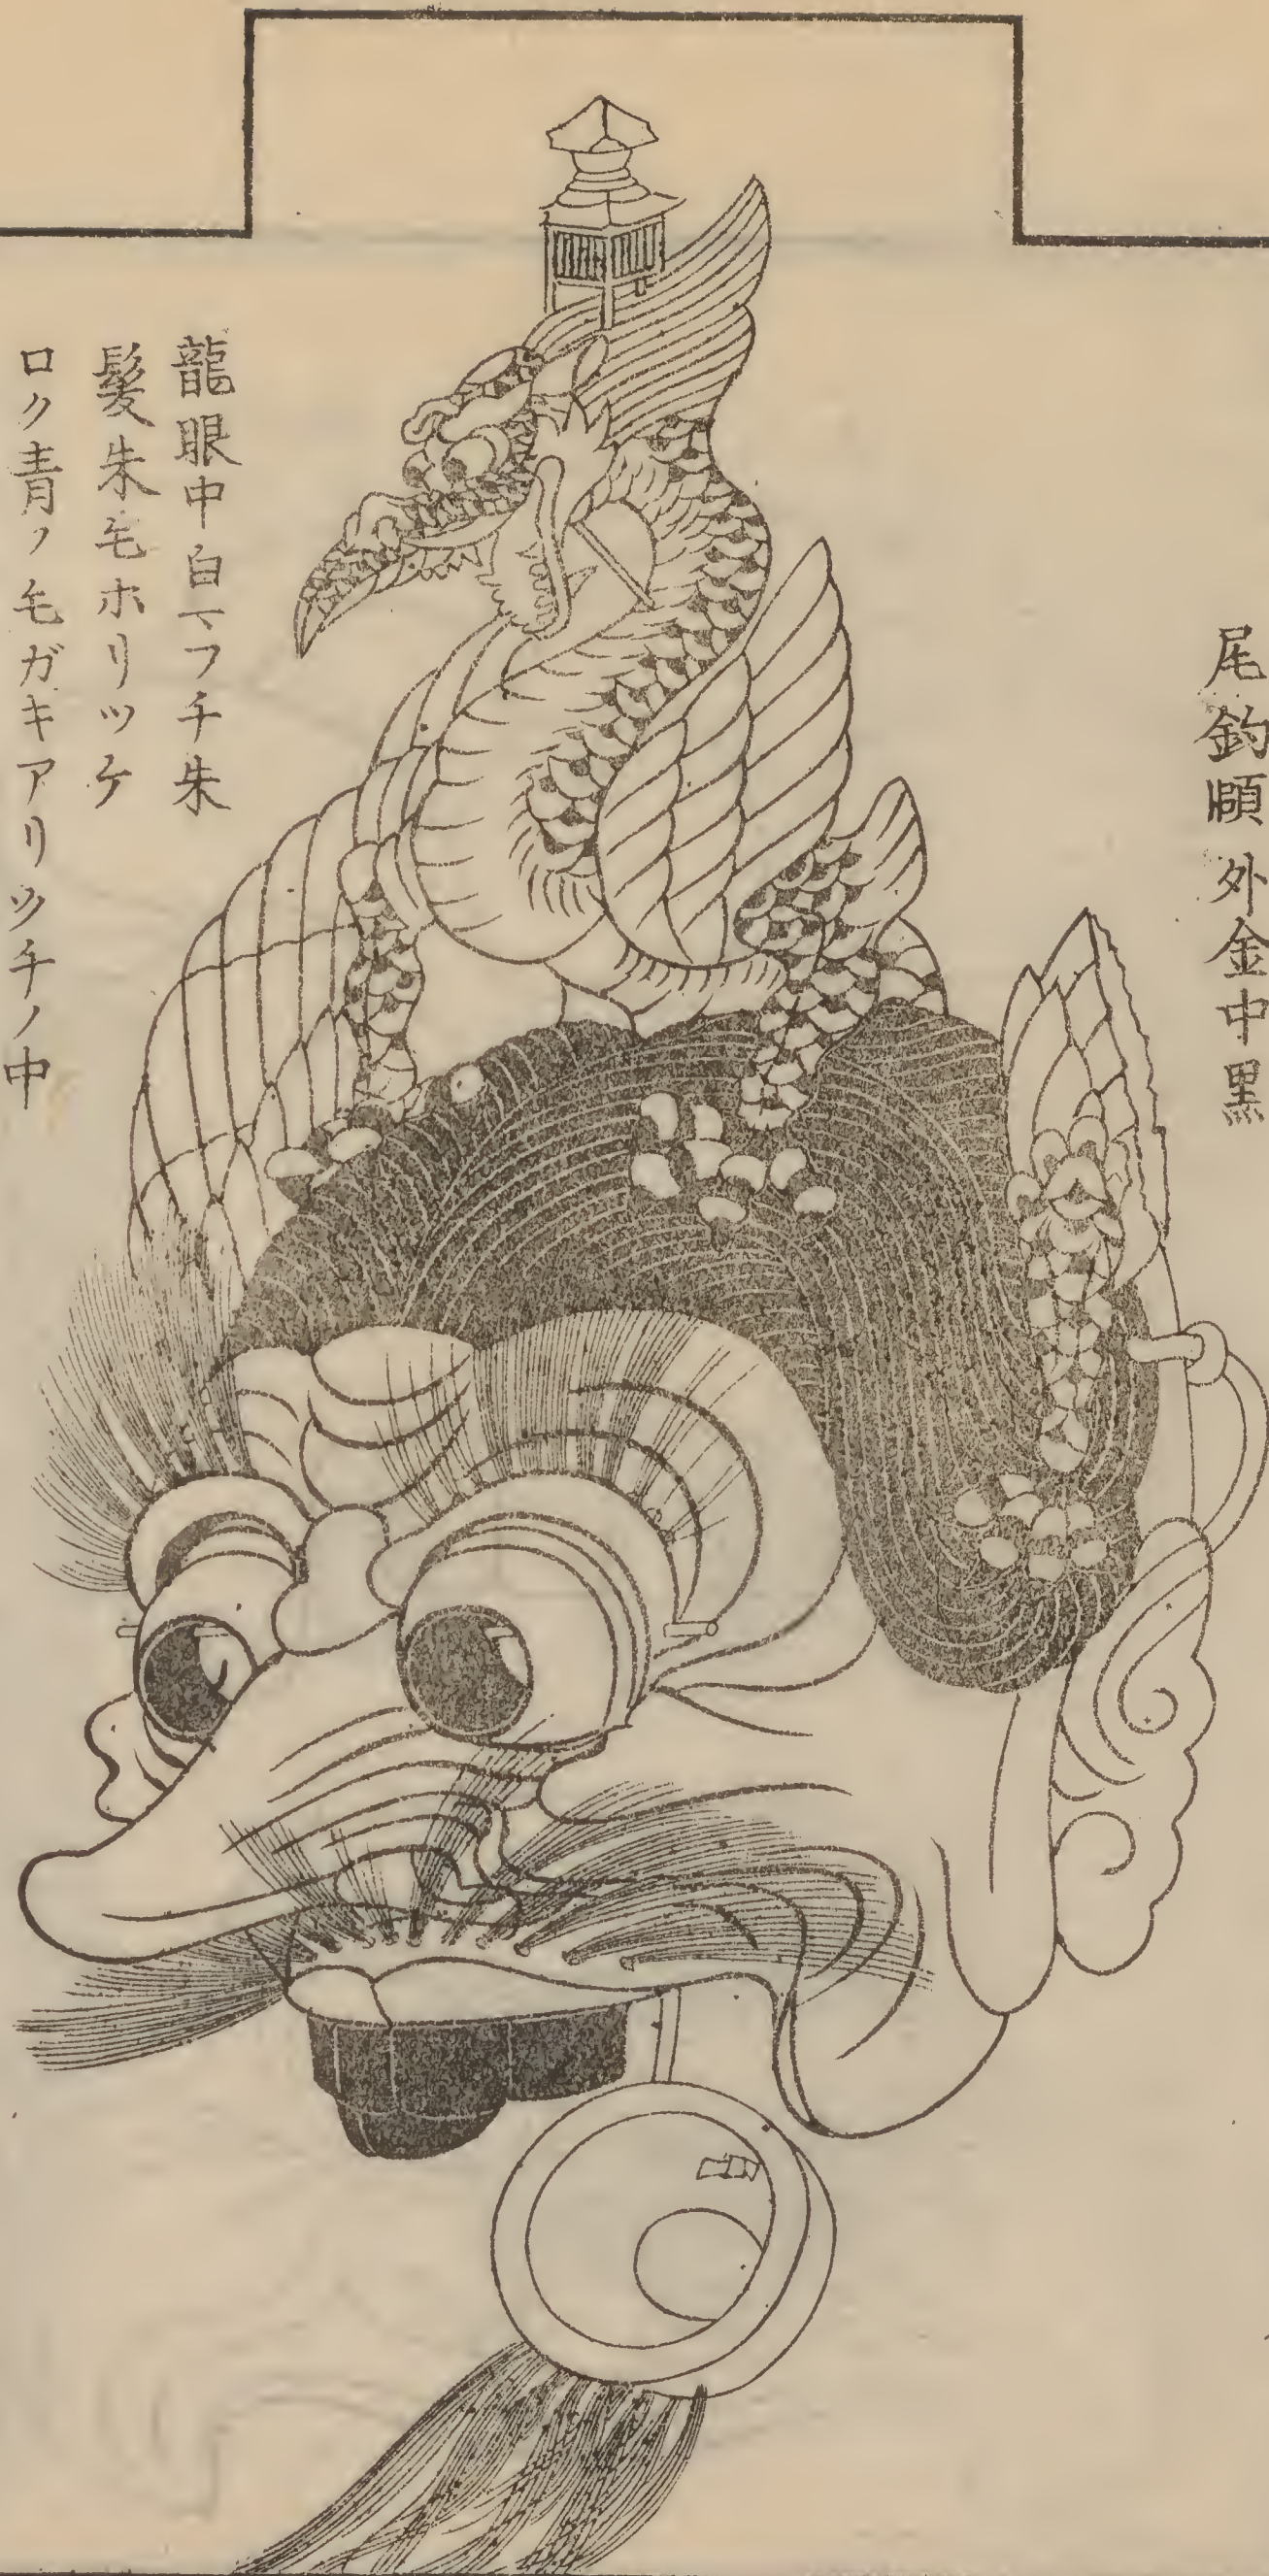 尾鈎頥外金中黒
龍眼中白マフチ朱
髪朱毛ホリツケ
ロク青ノ毛ガキアリツチノ中